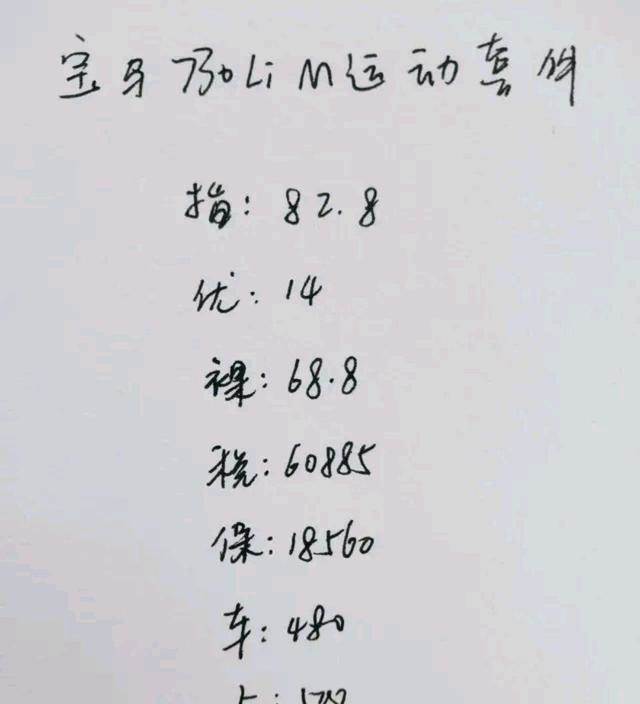 宝马730Li M运动套件
指: 82.8
优: 14
裸: 68.8
税: 60885
保: 18560
车: 480